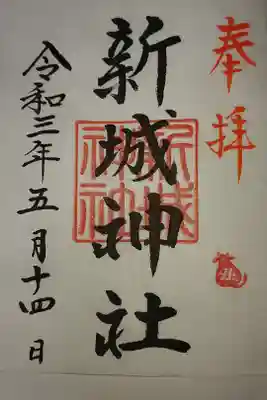 奉拝
新城神社
令和三年五月十四日
新城
神社
丑